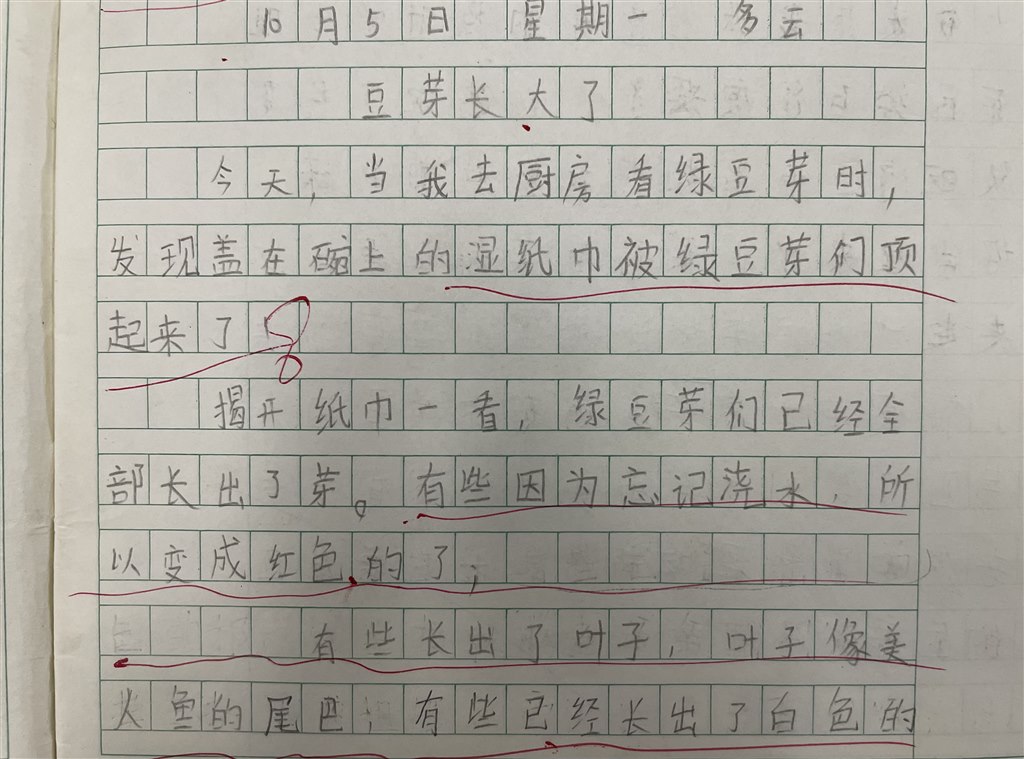 10月5日 星期一 多云
豆芽长大了
今天，当我去厨房看绿豆芽时，
发现盖在碗上的湿纸巾被绿豆芽们顶
起来了
揭开纸巾一看，绿豆芽们已经全
部长出了芽。有些因为忘记浇水，所
以变成红色的了；
有些长出了叶子，叶子像美
人鱼的尾巴；有些已经长出了白色的